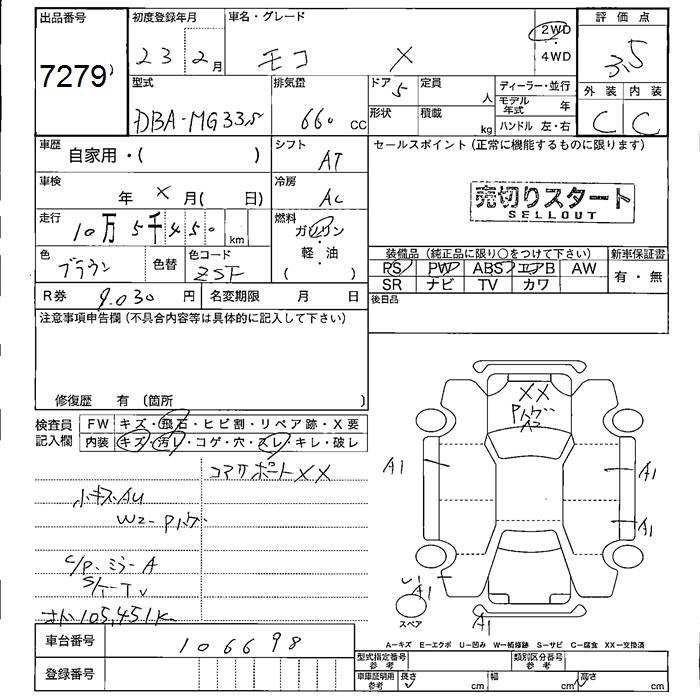 出品番号
7279
初度登録年月
23 2月
車名・グレード
モコ X
2WD
・
4WD
評価点
3.5
型式
DBA-MG33S
排気量
660 CC
ドア
5
定員
人
ディーラー・並行
モデル年式
年
ハンドル 左・右
形状
積載
kg
外装 内装
C C
車歴
自家用・( )
シフト
AT
車検
年 × 月( 日)
冷房
AC
走行
10万5千450 km
燃料
ガソリン
・
軽・油
( )
色
ブラウン
色替
色コード
ZSF
R券 9.030 円
名変期限 月 日
セールスポイント(正常に機能するものに限ります)
売切りスタート
SELLOUT
装備品(純正品に限り○をつけて下さい)
新車保証書
PS PW ABS エアB AW
有・無
SR ナビ TV カワ
後日品
注意事項申告欄(不具合内容等は具体的に記入して下さい)
修復歴 有(箇所 )
検査員
記入欄
FW キズ・飛石・ヒビ割・リペア跡・X要
内装 キズ・汚レ・コゲ・穴・スレ・キレ・破レ
コアサポートXX
小キズAU
W2-Pハゲ
C/P、ミラーA
105,451K
XX
Pハゲ
A2
A1
A1
A1
A1
A1
スペア
A-キズ E-エクボ U-凹み W-補修跡 S-サビ C-腐食 XX-交換済
車台番号
106698
登録番号
型式指定番号
参考
類別区分番号
参考
車庫証明用
参考
長さ cm
幅 cm
高さ cm